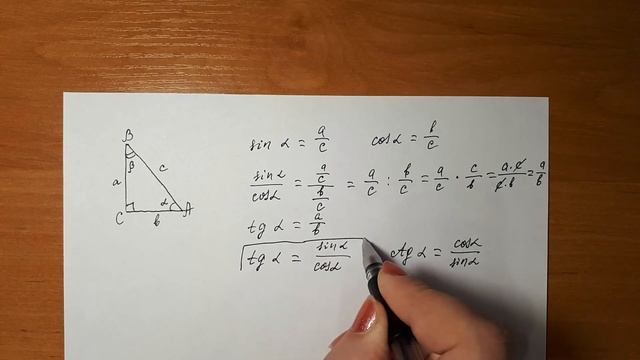 B
β
a
c
C
b
α
A
sin α = a/c cos α = b/c
sin α/cos α = (a/c)/(b/c) = a/c : b/c = a/c · c/b = a·c/c·b = a/b
tg α = a/b
tg α = sin α/cos α ctg α = cos α/sin α